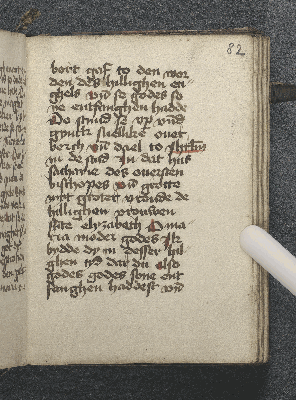 82
bort gaf to den wor
den des hillighen en
ghels vn se godes so
ne entfanghen hadde
Do stund se vp vnd
ghynck snellike ouer
berch vn dael to
in de stad In dat hus
zacharie des ouersten
bisschopes vn grotte
myt groter vraude de
hillighen vrouwen
sute elyzabeth O ma
ria moder godes Ik
bydde dy in desser hil
ghen tyd dat du also
godes godes sone ent
fanghen haddest vn